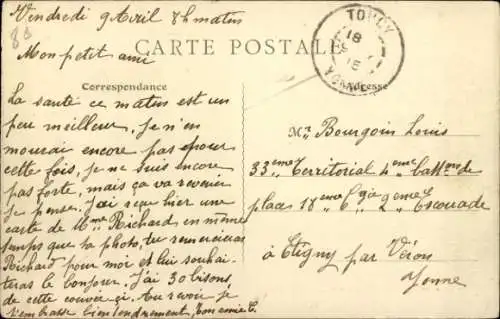 Vendredi 9 Avril 8h matin
Mon petit ami
CARTE POSTALE
TOUCY
18
15
YONNE
Correspondance
Adresse
La santé ce matin est un
peu meilleur. Je n'en
mourai encore pas pour
cette fois, je ne suis encore
pas forte, mais ça va revenir
je pense. J'ai reçu hier une
carte de Mme Richard en même
temps que ta photo, tu remercieras
Richard pour moi et lui souhai-
teras le bonjour. J'ai 30 bisons,
de cette couvée ci. Au revoir je
t'embrasse bien tendrement, ton amie
Mr Bourgoin Louis
33eme Territorial 4eme batt
place 18eme Cie 2eme Escouade
à Etigny par Véron
Yonne